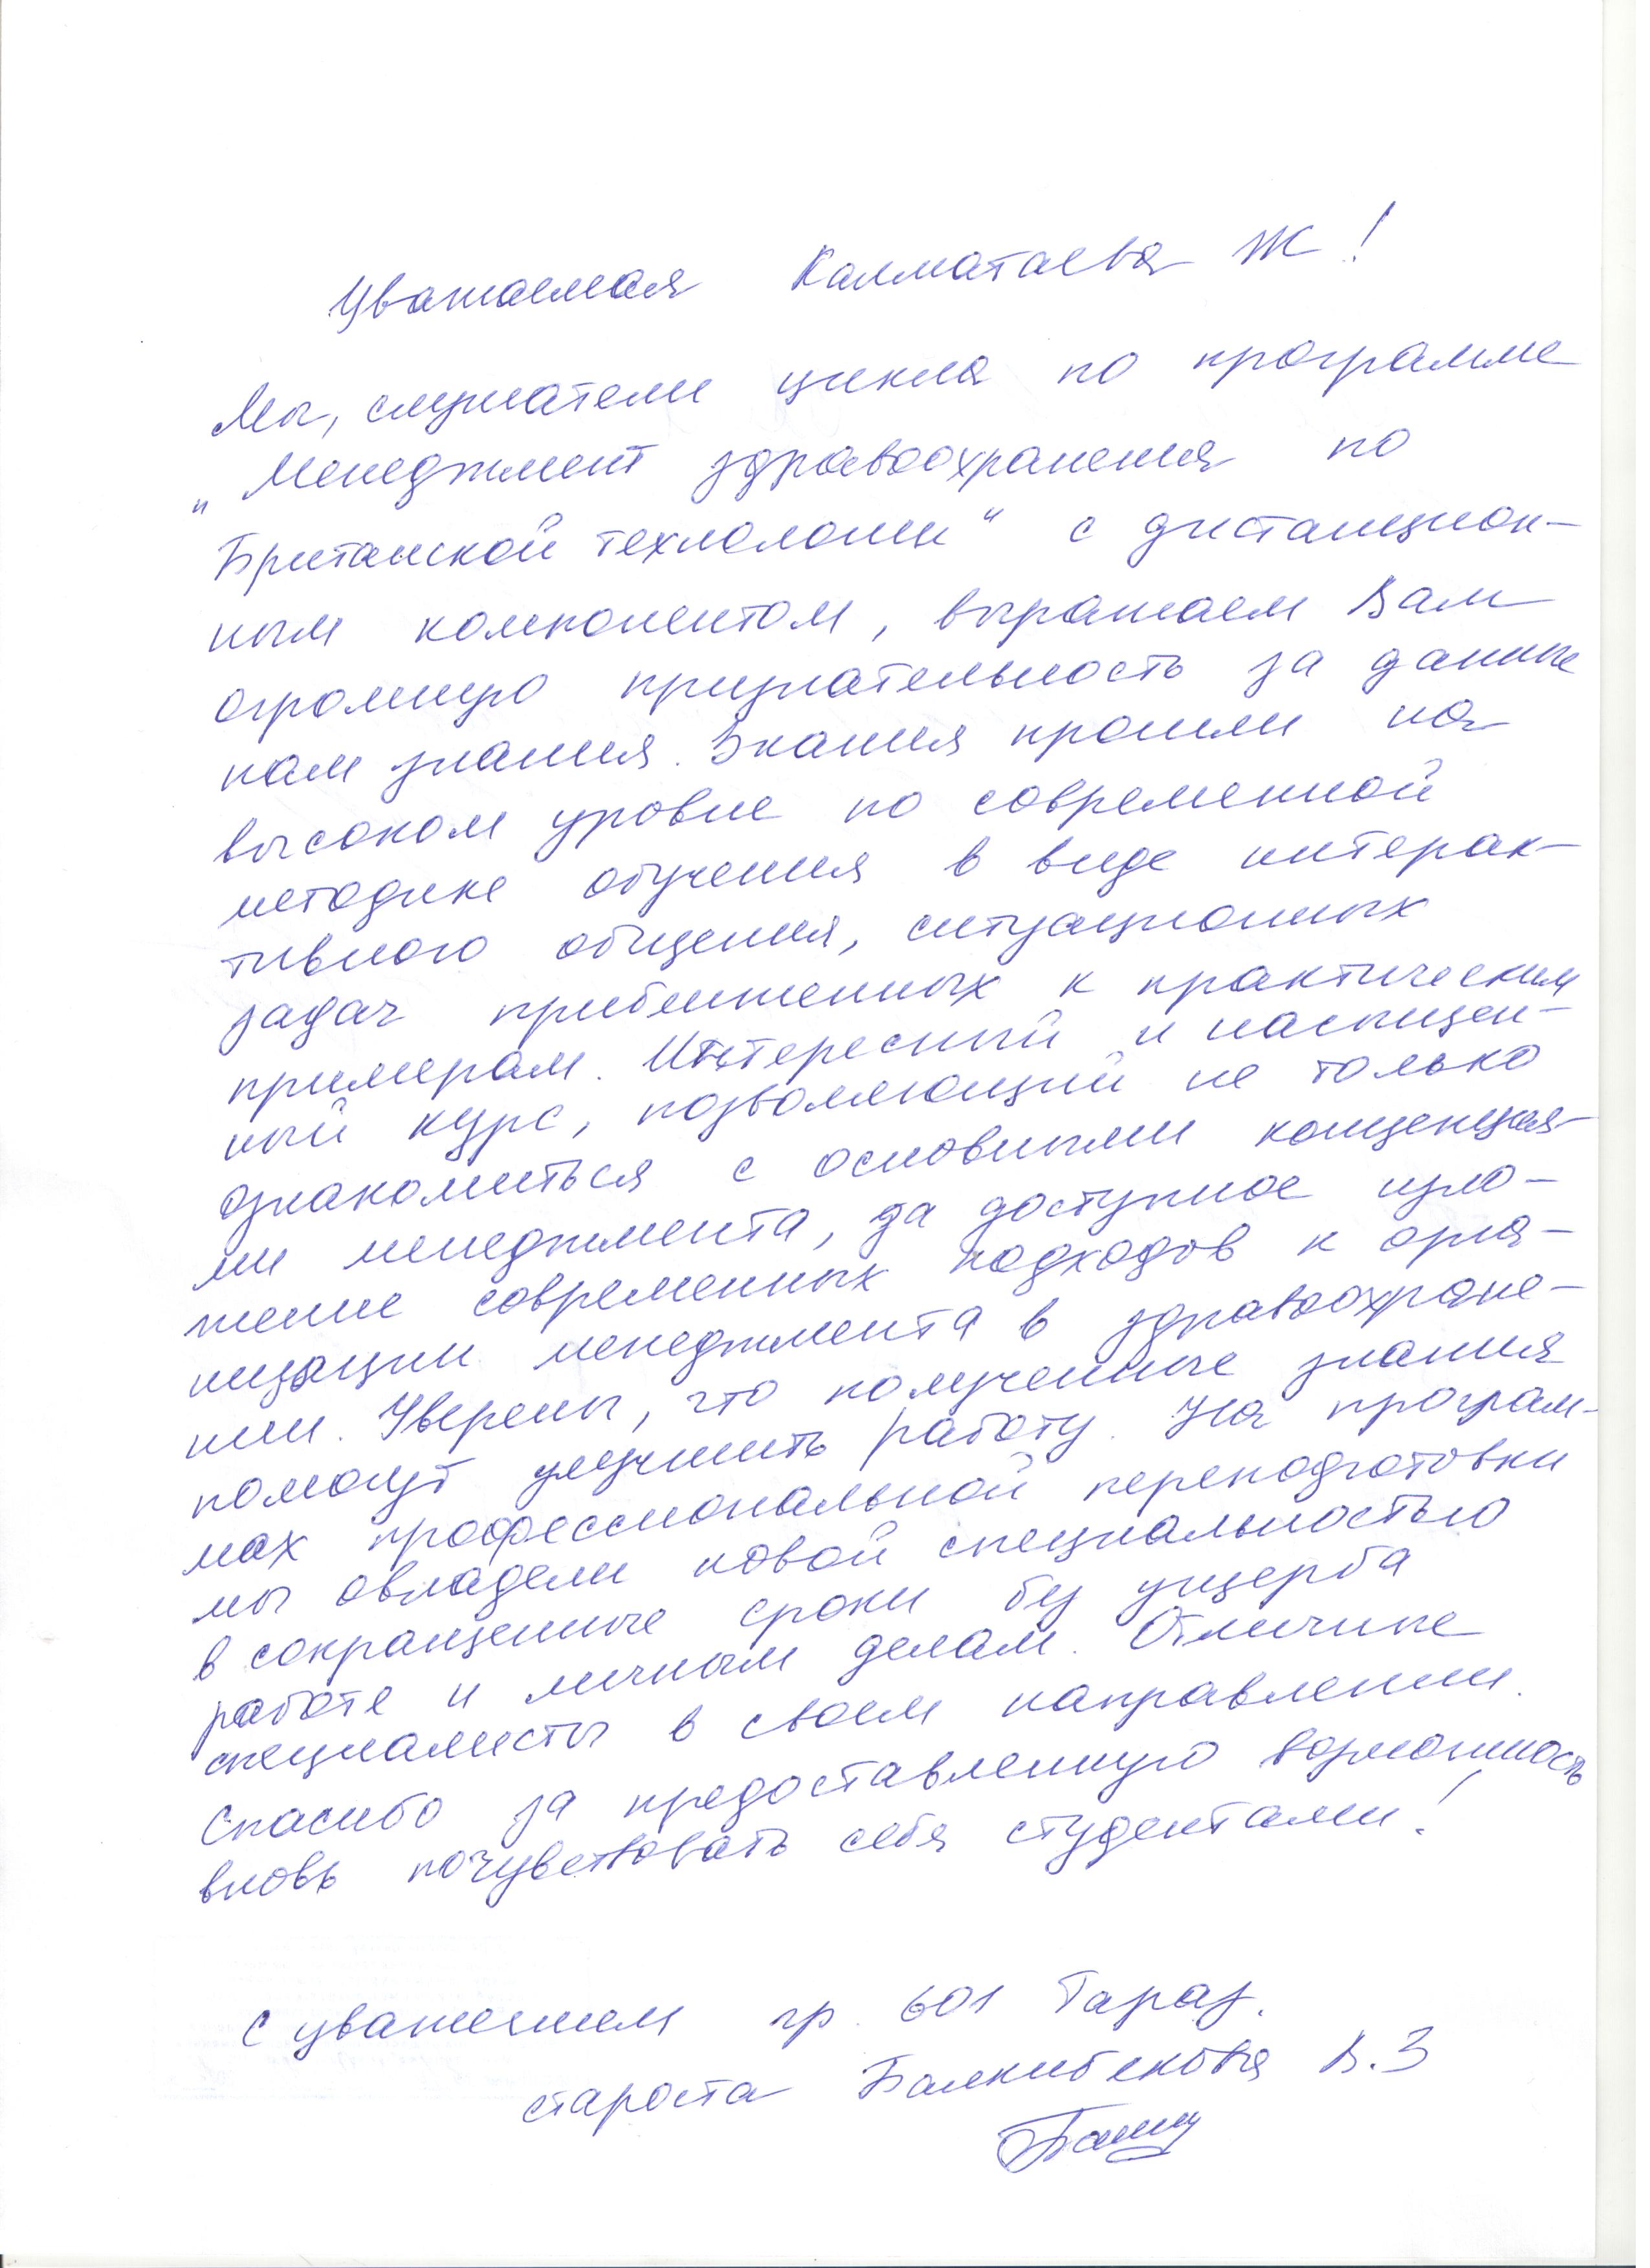 Уважаемая Калматаева Ж!
Мы, слушатели цикла по программе
„Менеджмент здравоохранения по
Британской технологии“ с дистанцион-
ным компонентом, выражаем Вам
огромную признательность за данные
нам знания. Знания прошли на
высоком уровне по современной
методике обучения в виде интерак-
тивного общения, ситуационных
задач приближенных к практическим
примерам. Интересный и насыщен-
ный курс, позволяющий не только
ознакомиться с основными концепция-
ми менеджмента, за доступное изло-
жение современных подходов к орга-
низации менеджмента в здравоохране-
нии. Уверены, что полученные знания
помогут улучшить работу. На програм-
мах профессиональной переподготовки
мы овладели новой специальностью
в сокращенные сроки без ущерба
работе и личным делам. Отличные
специалисты в своем направлении.
Спасибо за предоставленную возможность
вновь почувствовать себя студентами!
С уважением гр. 601 Тараз.
староста Балкибекова В.З